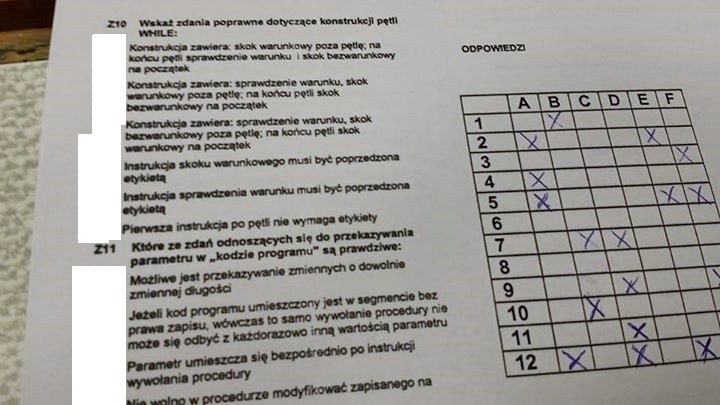 Z10 Wskaż zdania poprawne dotyczące konstrukcji pętli
WHILE:
Konstrukcja zawiera: skok warunkowy poza pętlę; na
końcu pętli sprawdzenie warunku i skok bezwarunkowy
na początek
Konstrukcja zawiera: sprawdzenie warunku, skok
warunkowy poza pętlę; na końcu pętli skok
bezwarunkowy na początek
Konstrukcja zawiera: sprawdzenie warunku, skok
bezwarunkowy poza pętlę; na końcu pętli skok
warunkowy na początek
Instrukcja skoku warunkowego musi być poprzedzona
etykietą
Instrukcja sprawdzenia warunku musi być poprzedzona
etykietą
Pierwsza instrukcja po pętli nie wymaga etykiety
Z11 Które ze zdań odnoszących się do przekazywania
parametru w „kodzie programu" są prawdziwe:
Możliwe jest przekazywanie zmiennych o dowolnie
zmiennej długości
Jeżeli kod programu umieszczony jest w segmencie bez
prawa zapisu, wówczas to samo wywołanie procedury nie
może się odbyć z każdorazowo inną wartością parametru
Parametr umieszcza się bezpośrednio po instrukcji
wywołania procedury
Nie wolno w procedurze modyfikować zapisanego na
ODPOWIEDZI
A B C D E F
1 X
2 X X
3 X
4 X
5 X X X
6
7 X X
8
9 X
10 X
11 X
12 X X X